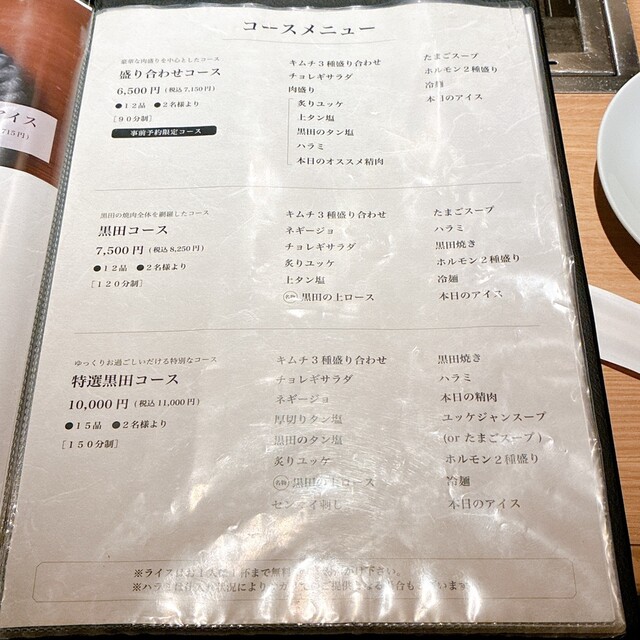 コースメニュー
豪華な肉盛りを中心としたコース
盛り合わせコース
6,500円 (税込7,150円)
●12品 ●2名様より
[90分制]
事前予約限定コース
キムチ3種盛り合わせ
チョレギサラダ
肉盛り
炙りユッケ
上タン塩
黒田のタン塩
ハラミ
本日のオススメ精肉
たまごスープ
ホルモン2種盛り
冷麺
本日のアイス
黒田の焼肉全体を網羅したコース
黒田コース
7,500円 (税込8,250円)
●12品 ●2名様より
[120分制]
キムチ3種盛り合わせ
ネギージョ
チョレギサラダ
炙りユッケ
上タン塩
名物 黒田の上ロース
たまごスープ
ハラミ
黒田焼き
ホルモン2種盛り
冷麺
本日のアイス
ゆっくりお過ごしいだける特別なコース
特選黒田コース
10,000円 (税込11,000円)
●15品 ●2名様より
[150分制]
キムチ3種盛り合わせ
チョレギサラダ
ネギージョ
厚切りタン塩
黒田のタン塩
炙りユッケ
名物 黒田の上ロース
センマイ刺し
黒田焼き
ハラミ
本日の精肉
ユッケジャンスープ
(or たまごスープ)
ホルモン2種盛り
冷麺
本日のアイス
※ライスはお1人に1杯まで無料
※ハラミは仕入れ状況により
アイス
715円)